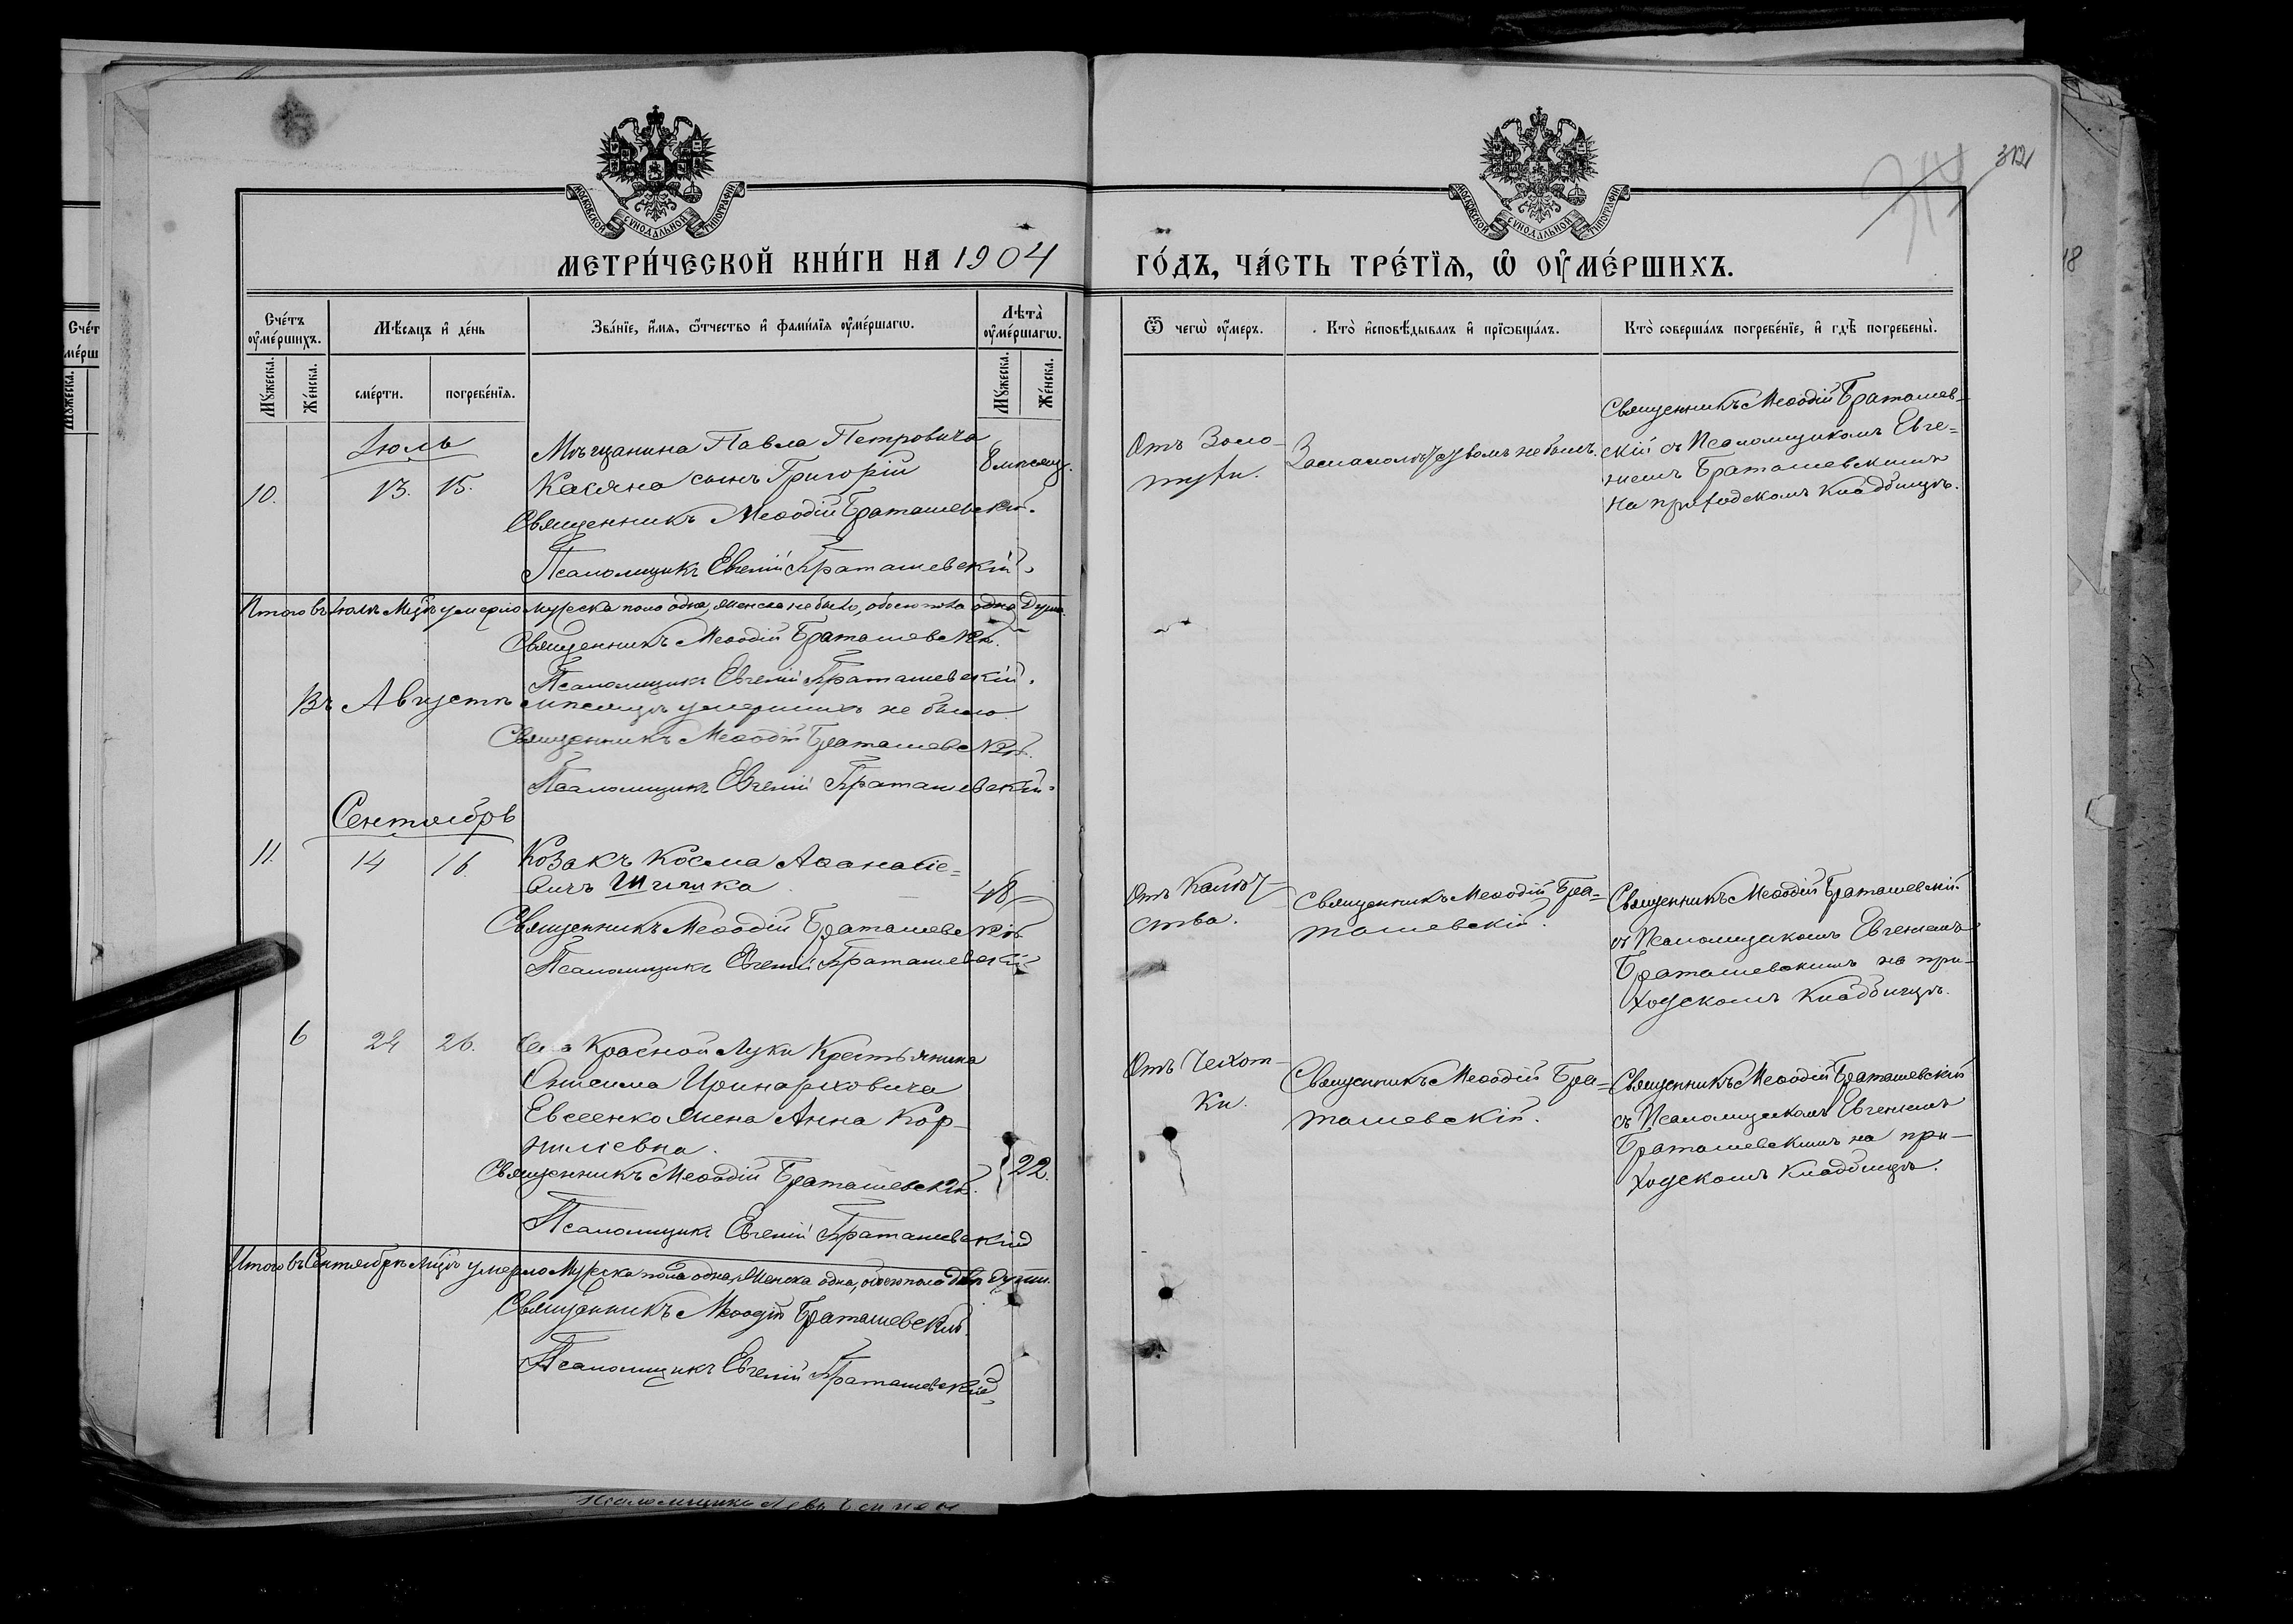 312
МОСКОВСКОЙ СѴНОДАЛЬНОЙ ТИПОГРАФІИ
МОСКОВСКОЙ СѴНОДАЛЬНОЙ ТИПОГРАФІИ
МЕТРИ́ЧЕСКОЙ КНИ́ГИ НА 1904
ГО́ДЪ, ЧА́СТЬ ТРЕ́ТІѦ, Ѡ ОУ҆МЕ́РШИХЪ.
Сче́тъ оу҆ме́ршихъ.
Мѣ́сѧцъ и҆ де́нь
Зва́нїе, и҆́мѧ, ѻ҆́тчество и҆ фами́лїѧ оу҆ме́ршагѡ.
Лѣта̀ оу҆ме́ршагѡ.
Ѿ чегѡ̀ оу҆́меръ.
Кто̀ и҆сповѣ́дывалъ и҆ прїѡбща́лъ.
Кто̀ соверша́лъ погребе́нїе, и҆ гдѣ̀ погребены̀.
Мꙋ́жеска.
Же́нска.
сме́рти.
погребе́нїѧ.
Мꙋ́жеска.
Же́нска.
Іюль
10. 13. 15.
Мѣщанина Павла Петровича
Касяна сынъ Григорій
8 мѣсяц.
Священникъ Меѳодій Браташевскій.
Псаломщикъ Евгеній Браташевскій.
Отъ Золо-
тухи.
За малолѣтствомъ не былъ.
Священникъ Меѳодій Браташев-
скій съ Псаломщикомъ Евге-
ніемъ Браташевскимъ
на приходскомъ кладбищѣ.
Итого въ Іюлѣ Мцѣ умерло мужеска пола одна, женска не было, обоего пола одна душа.
Священникъ Меѳодій Браташевскій.
Псаломщикъ Евгеній Браташевскій.
Въ Августѣ мѣсяцѣ умершихъ не было
Священникъ Меѳодій Браташевскій.
Псаломщикъ Евгеній Браташевскій.
Сентябрь
11. 14 16.
Козакъ Косма Аѳанасіе-
вичъ Шишка
48
Священникъ Меѳодій Браташевскій
Псаломщикъ Евгеній Браташевскій
Отъ
ства.
Священникъ Меѳодій Бра-
ташевскій.
Священникъ Меѳодій Браташевскій
съ Псаломщикомъ Евгеніемъ
Браташевскимъ на при-
ходскомъ кладбищѣ.
6 24 26.
Села Красной Луки Крестьянина
Онисима Иринарховича
Евсеенко жена Анна Кор-
ниліевна.
22.
Священникъ Меѳодій Браташевскій.
Псаломщикъ Евгеній Браташевскій
Отъ Чахот-
ки.
Священникъ Меѳодій Бра-
ташевскій.
Священникъ Меѳодій Браташевскій
съ Псаломщикомъ Евгеніемъ
Браташевскимъ на при-
ходскомъ кладбищѣ.
Итого въ Сентябрѣ Мцѣ умерло Мужеска пола одна, Женска одна, обоего пола двѣ души.
Священникъ Меѳодій Браташевскій.
Псаломщикъ Евгеній Браташевскій